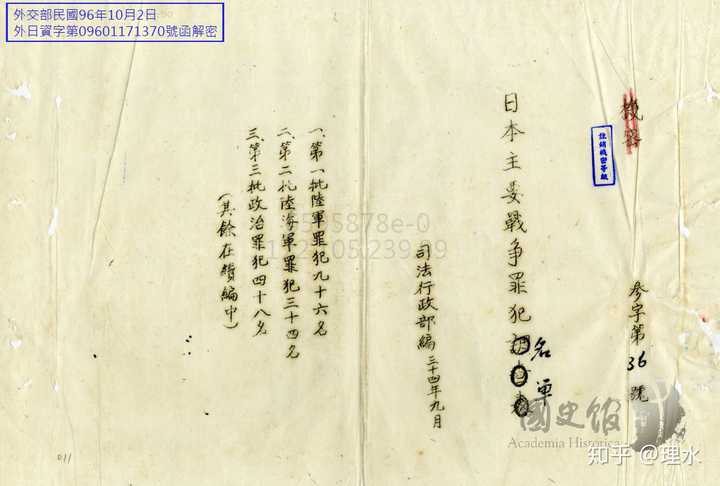 外交部民國96年10月2日
外日資字第09601171370號函解密
機密
註銷機密等級
參字第36號
日本主要戰爭罪犯名單
司法行政部編 三十四年九月
一、第一批陸軍罪犯九十六名
二、第二批陸海軍罪犯三十四名
三、第三批政治罪犯四十八名
(其餘在續編中)
011
國史館
Academia Historica
知乎 @理水